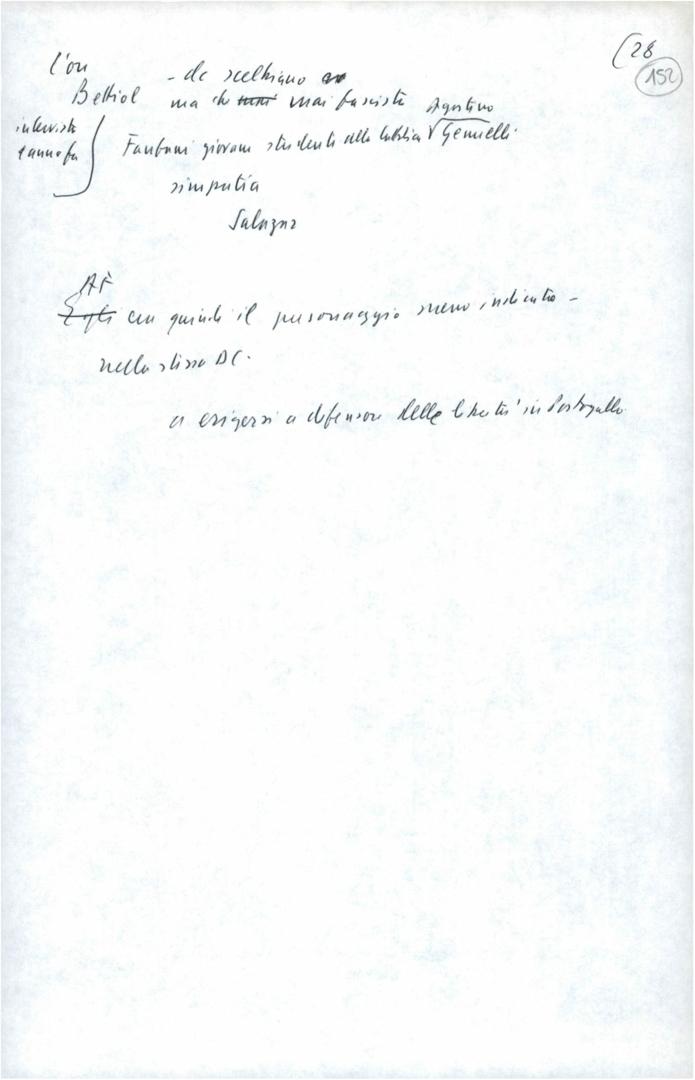 (28
152
l'on
Bettiol - dc scelbiano
ma dc mai fascista Agostino
intervista
1 anno fa
Fanfani giovane studente alla Cattolica Gemelli
simpatia
Salazar
AF
Egli era quindi il personaggio meno indicato -
nella stessa DC.
a erigersi a difensore delle libertà in Portogallo